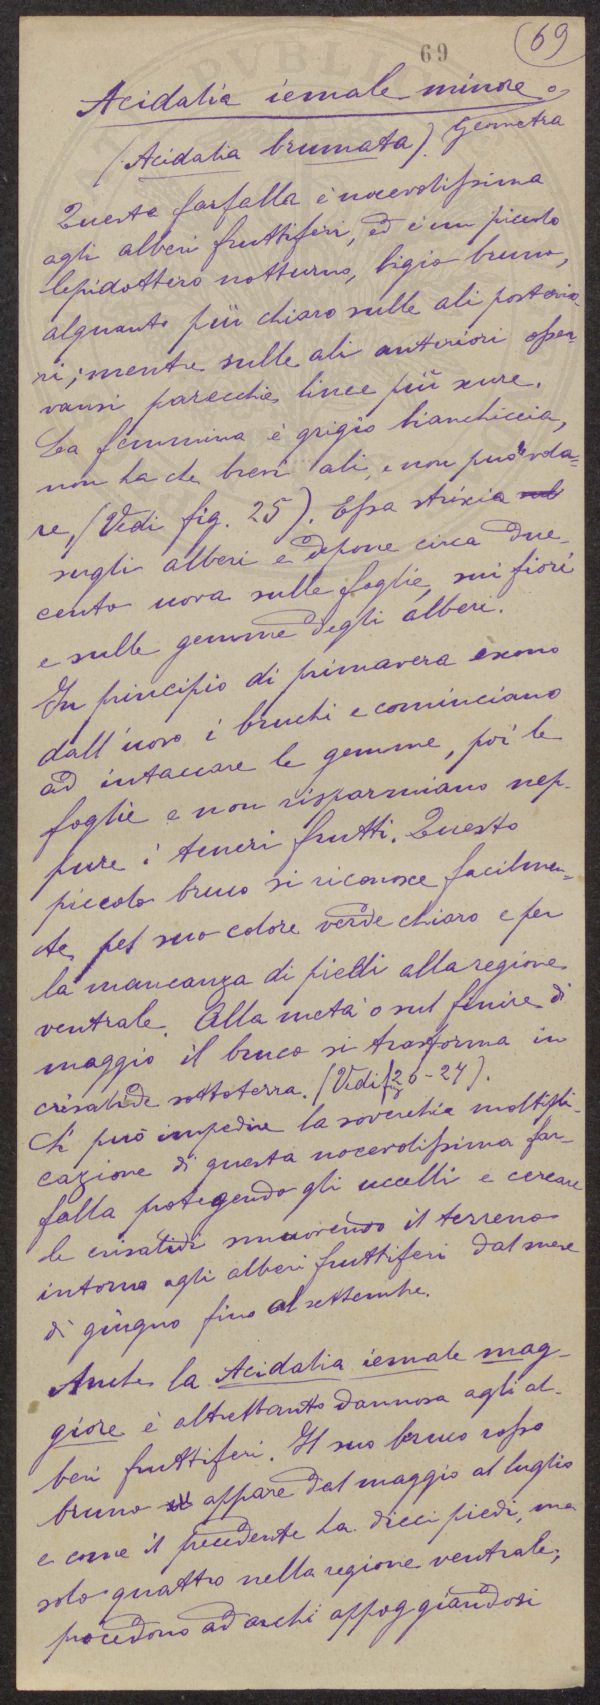 69
69
Acidalia iemale minore.
(Acidalia brumata). Geometra
Questa farfalla è nocevolissima
agli alberi fruttiferi, ed è un piccolo
lepidottero notturno, bigio bruno,
alquanto più chiaro sulle ali posterio-
ri; mentre sulle ali anteriori osser-
vansi parecchie linee più scure.
La femmina è grigio bianchiccia,
non ha che brevi ali, e non può vola-
re, (Vedi fig. 25). Essa striscia
sugli alberi e depone circa due-
cento uova sulle foglie, sui fiori
e sulle gemme degli alberi.
In principio di primavera escono
dall'uovo i bruchi e cominciano
ad intaccare le gemme, poi le
foglie e non risparmiano nep-
pure i teneri frutti. Questo
piccolo bruco si riconosce facilmen-
te pel suo colore verde chiaro e per
la mancanza di piedi alla regione
ventrale. Alla metà o sul finire di
maggio il bruco si trasforma in
crisalide sottoterra. (Vedi fig. 26-27).
Si può impedire la soverchia moltipli-
cazione di questa nocevolissima far-
falla proteggendo gli uccelli e cercare
le crisalidi smuovendo il terreno
intorno agli alberi fruttiferi dal mese
di giugno fino al settembre.
Anche la Acidalia iemale mag-
giore è altrettanto dannosa agli al-
beri fruttiferi. Il suo bruco rosso
bruno appare dal maggio al luglio
e come il precedente ha dieci piedi, ma
solo quattro nella regione ventrale;
procedono ad archi appoggiandosi
PVBLIC